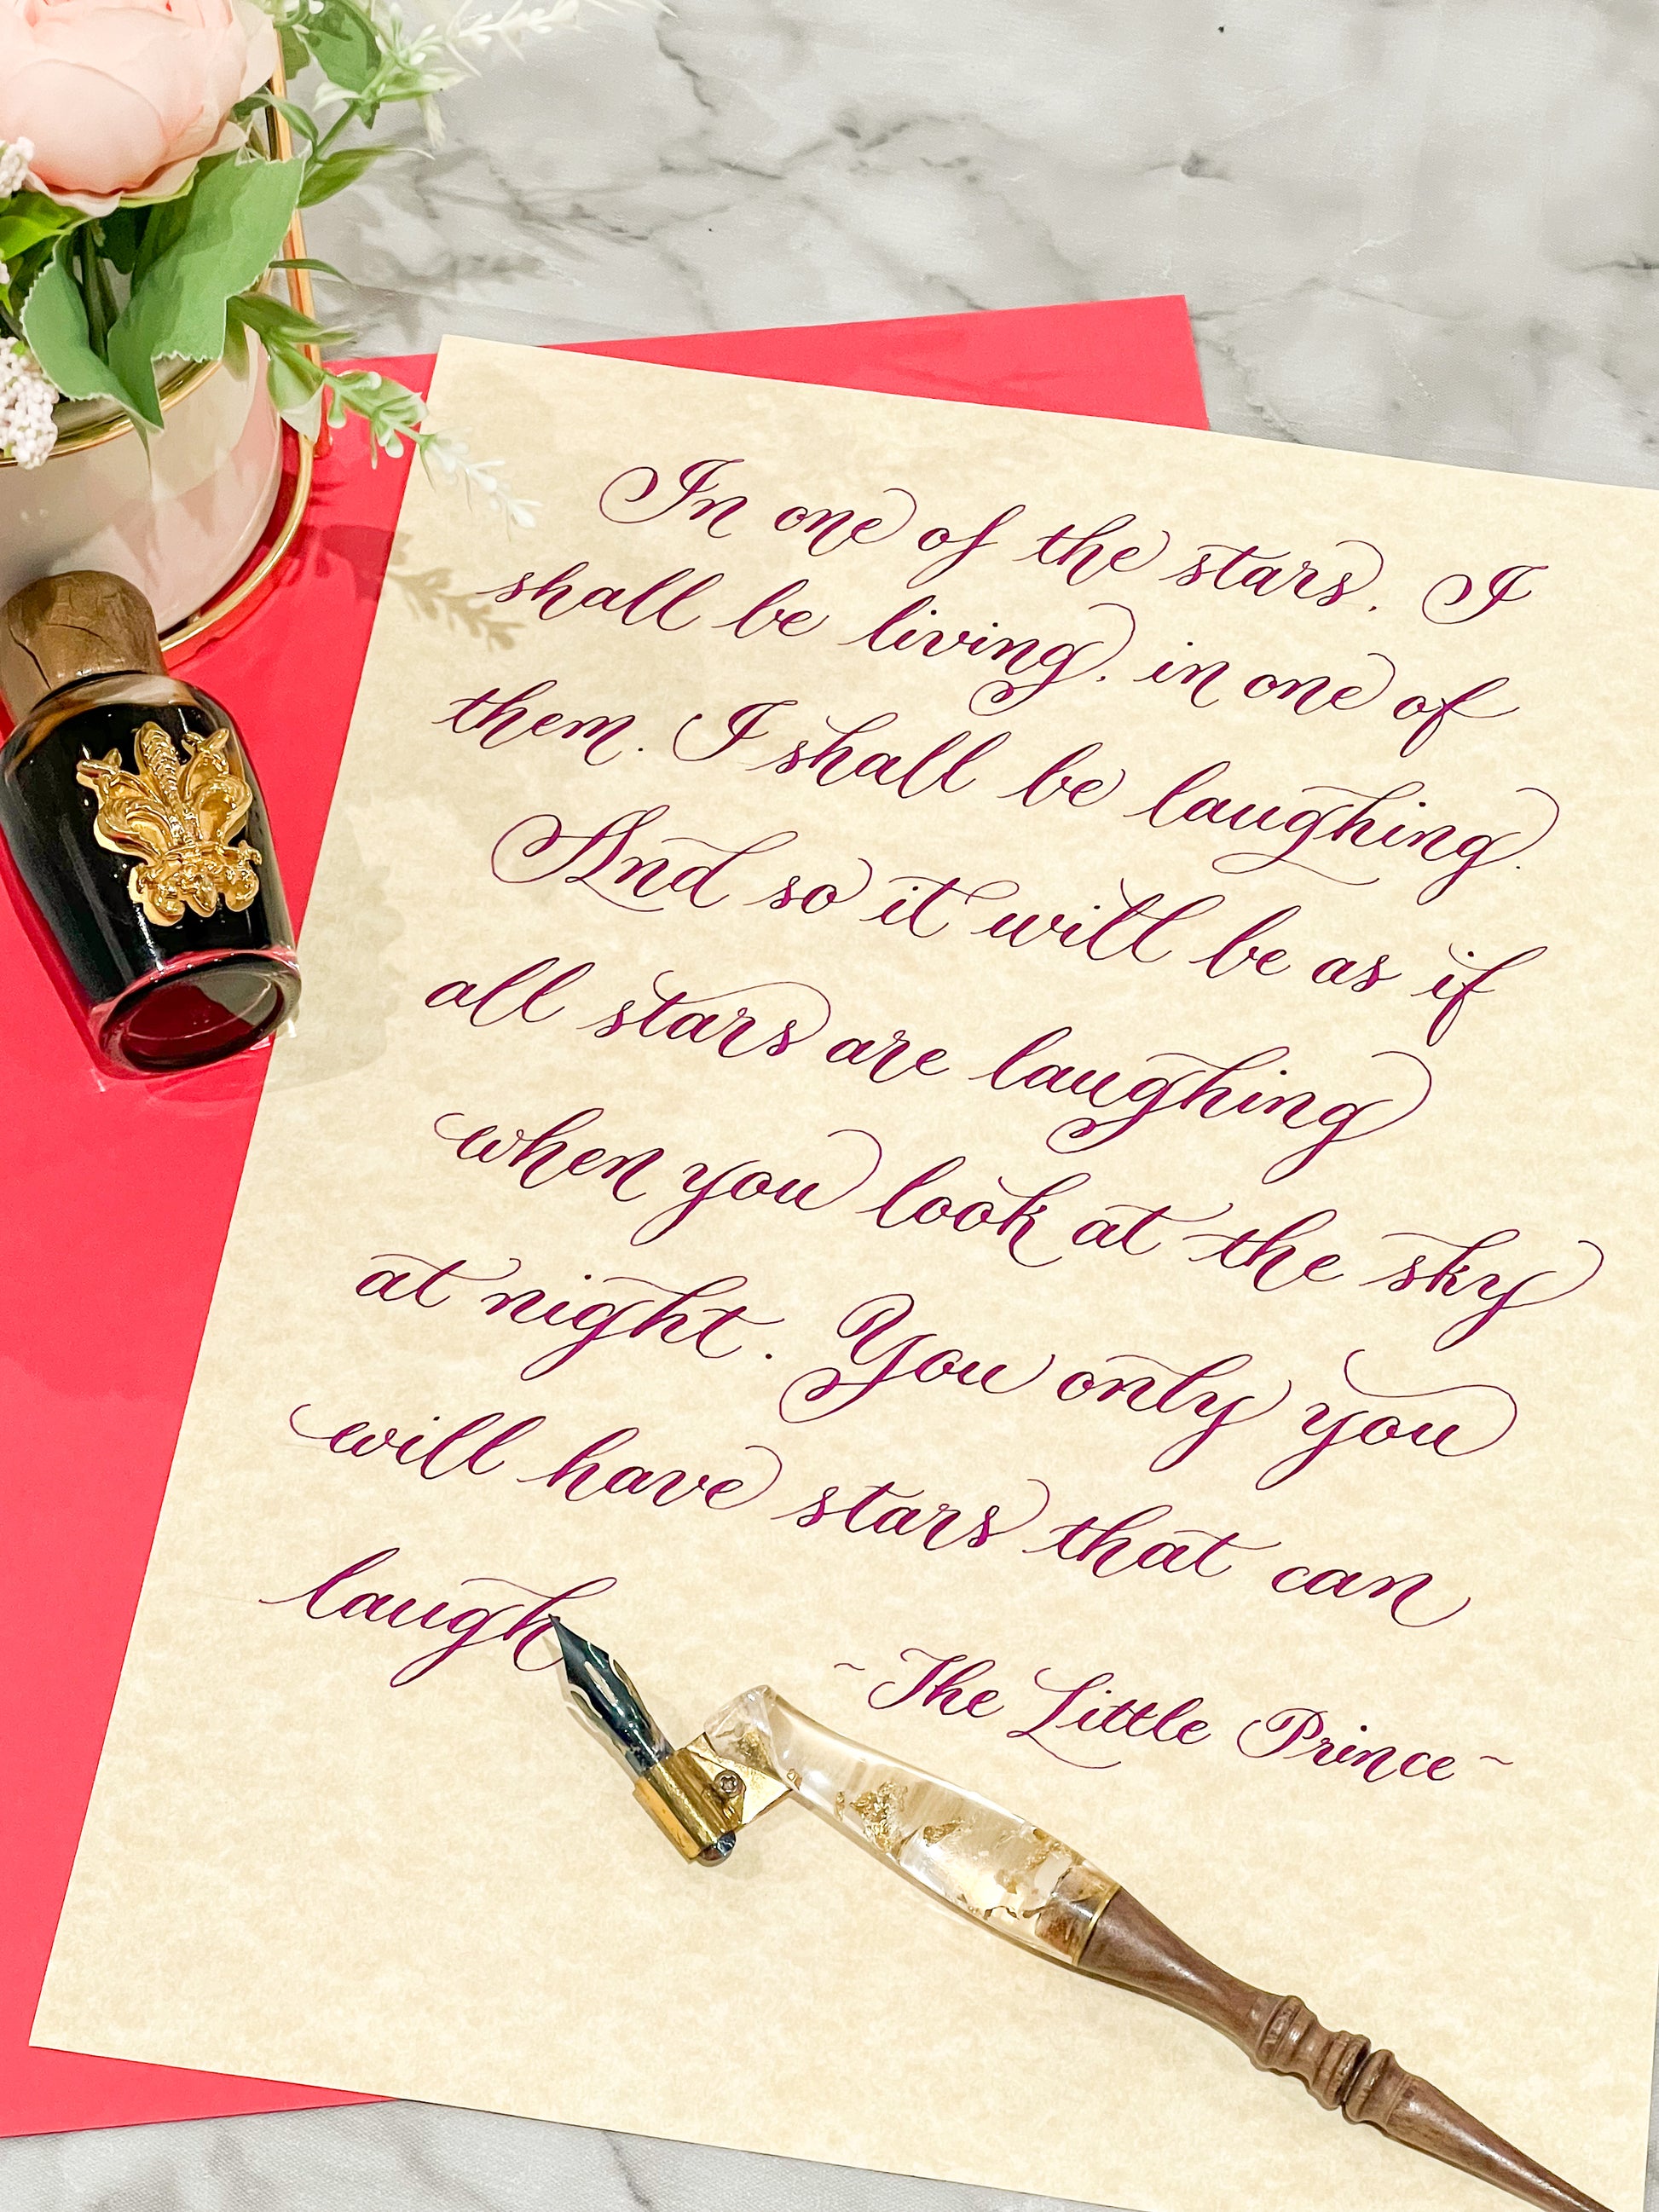 In one of the stars, I
shall be living, in one of
them. I shall be laughing.
And so it will be as if
all stars are laughing
when you look at the sky
at night. You only you
will have stars that can
laugh
~The Little Prince~